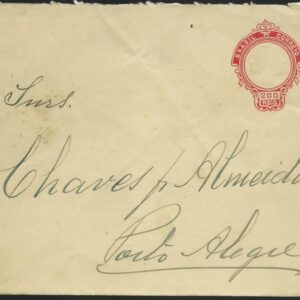 BRASIL CORREIO
200
REIS
Snrs.
Chaves p Almeida
Porto Alegre